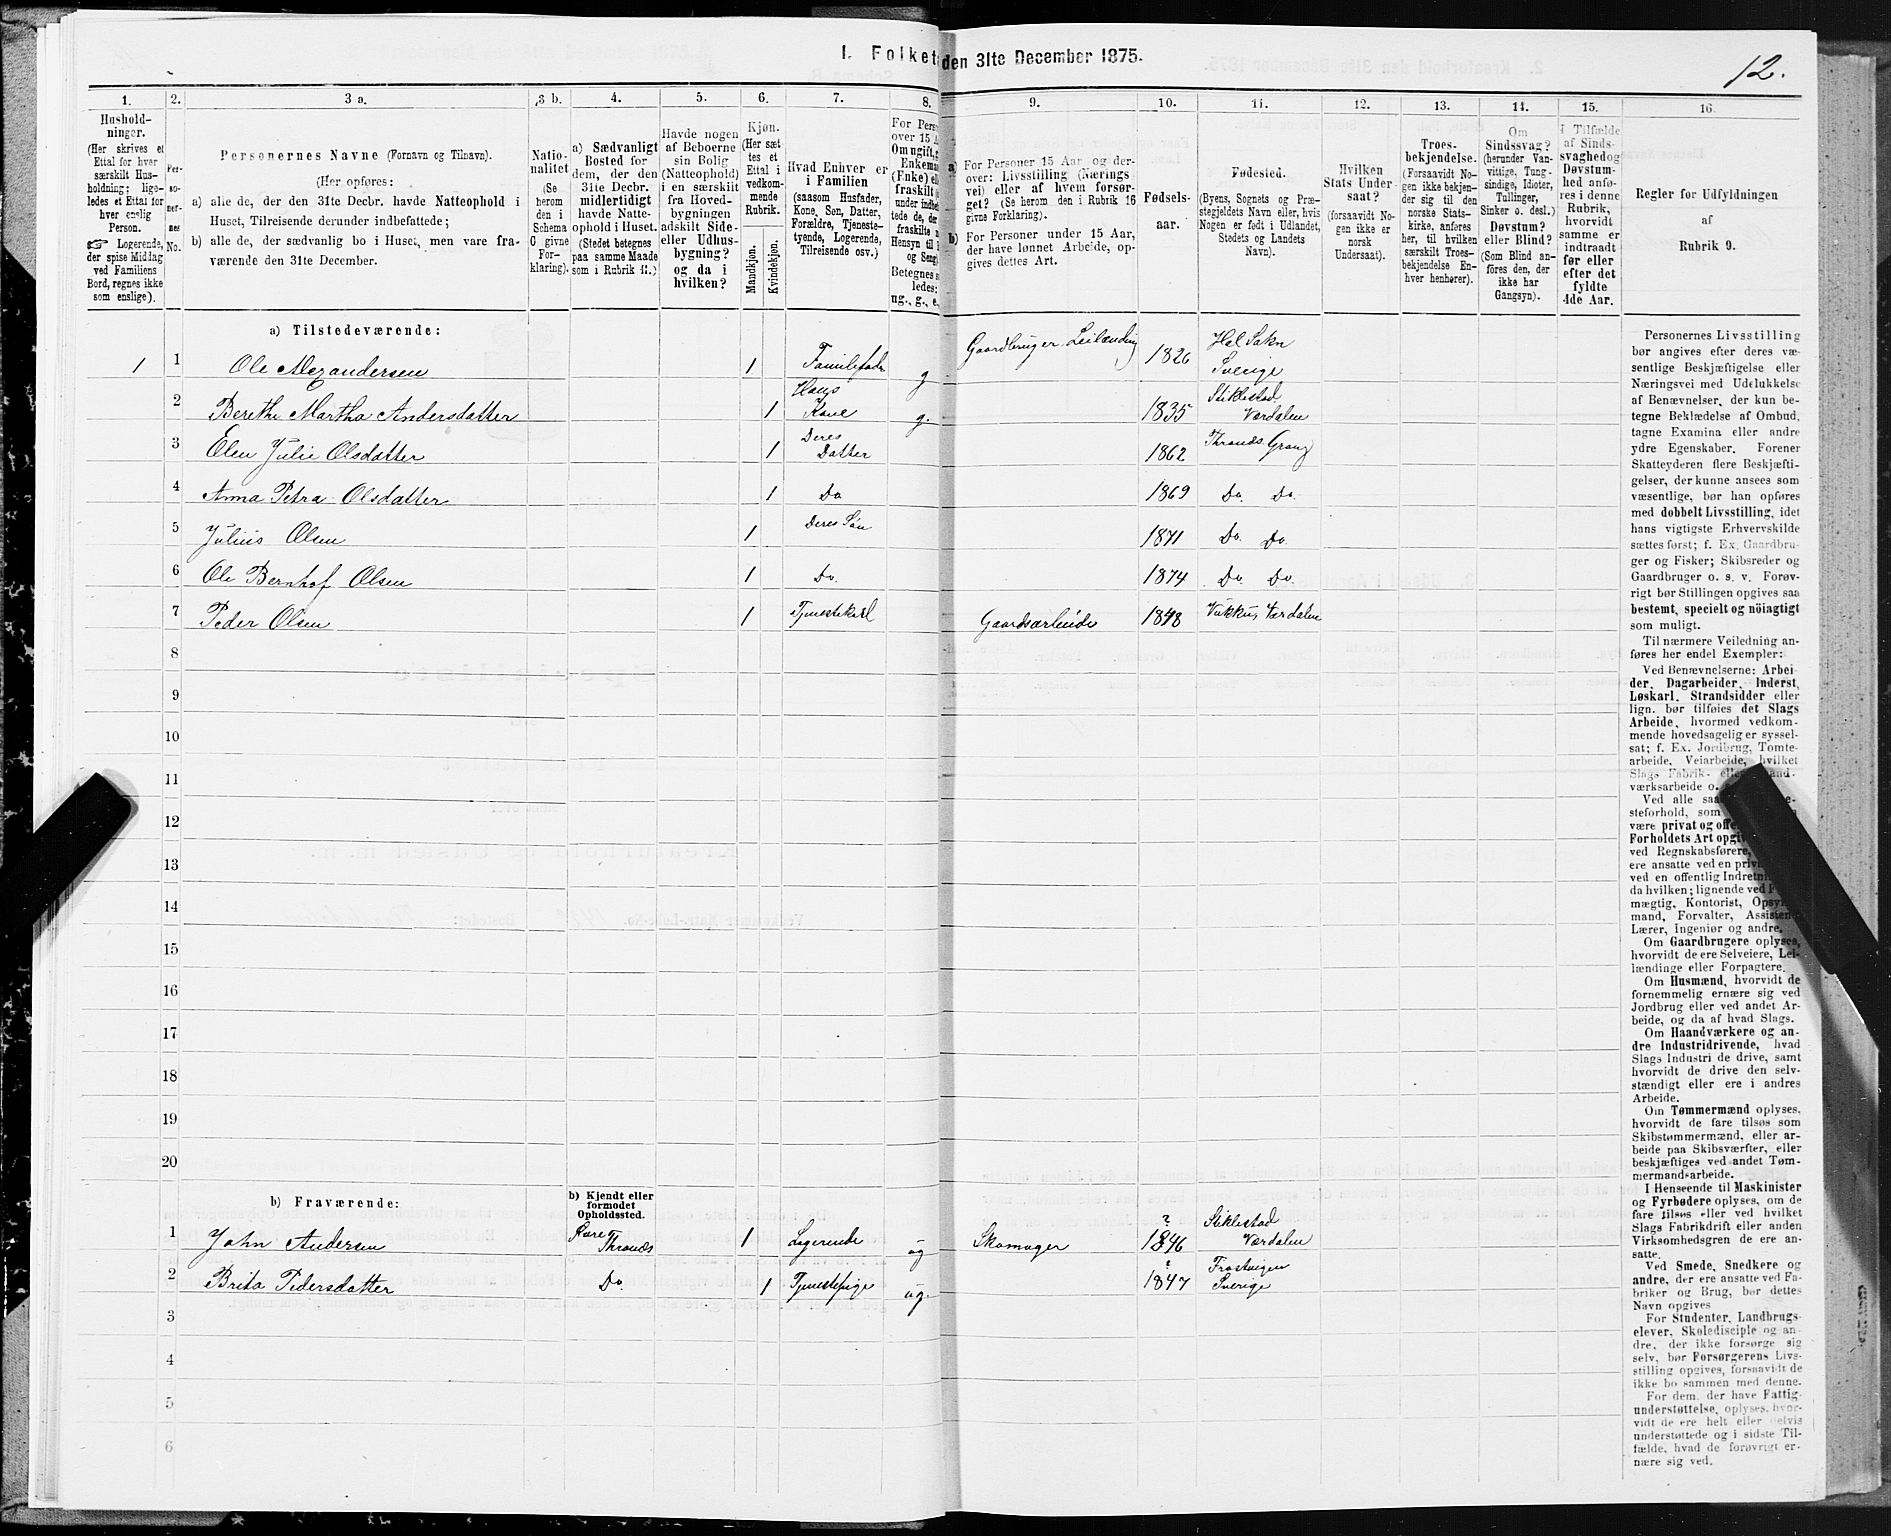 I. Folket den 31te December 1875.
12.
1.
2.
3 a.
3 b.
4.
5.
6.
7.
8.
9.
10.
11.
12.
13.
14.
15.
16.
Hushold-
ninger.
(Her skrives et
Ettal for hver
særskilt Hus-
holdning; lige-
ledes et Ettal for
hver enslig
Person.
☞ Logerende,
der spise Middag
ved Familiens
Bord, regnes ikke
som enslige).
Per-
so-
ner-
nes
No.
Personernes Navne (Fornavn og Tilnavn).
(Her opføres:
a) alle de, der den 31te Decbr. havde Natteophold i
Huset, Tilreisende derunder indbefattede;
b) alle de, der sædvanlig bo i Huset, men vare fra-
værende den 31te December.
Natio-
nalitet
(Se
herom
den i
Schema
C givne
For-
klaring).
a) Sædvanligt
Bosted for
dem, der den
31te Decbr.
midlertidigt
havde Natte-
ophold i Huset.
(Stedet betegnes
paa samme Maade
som i Rubrik 11.)
Havde nogen
af Beboerne
sin Bolig
(Natteophold)
i en særskilt
fra Hoved-
bygningen
adskilt Side-
eller Udhus-
bygning?
og da i
hvilken?
Kjøn.
(Her sæt-
tes et
Ettal i
vedkom-
mende
Rubrik.
Mandkjøn.
Kvindekjøn.
Hvad Enhver er
i Familien
(saasom Husfader,
Kone, Søn, Datter,
Forældre, Tjeneste-
tyende, Logerende,
Tilreisende osv.)
For Pers
over 15 A
Om ugift, g
Enkema
(Enke) el
fraskilt
under indbe
tede de, der
fraskilte
Hensyn til
og Seng
Betegnes s
ledes:
ug., g., e.,
a) For Personer 15 Aar og der-
over: Livsstilling (Nærings
vei) eller af hvem forsør-
get? (Se herom den i Rubrik 16
givne Forklaring).
b) For Personer under 15 Aar,
der have lønnet Arbeide, op-
gives dettes Art.
Fødsels-
aar.
Fødested.
(Byens, Sognets og Præ-
stegjeldets Navn eller, hvis
Nogen er født i Udlandet,
Stedets og Landets
Navn).
Hvilken
Stats Under-
saat?
(forsaavidt No-
gen ikke er
norsk
Undersaat).
Troes-
bekjendelse.
(Forsaavidt No-
gen ikke bekjen-
der sig til den
norske Stats-
kirke, anføres
her, til hvilken
særskilt Troes-
bekjendelse En-
hver henhører).
Om
Sindssvag?
(herunder Van-
vittige, Tung-
sindige, Idioter,
Tullinger,
Sinker o. desl.)
Døvstum?
eller Blind?
(Som Blind an-
føres den, der
ikke har
Gangsyn).
I Tilfælde
af Sinds-
svaghed og
Døvstum-
hed anfø-
res i denne
Rubrik,
hvorvidt
samme er
indtraadt
før eller
efter det
fyldte
4de Aar.
Regler for Udfyldningen
af
Rubrik 9.
a) Tilstedeværende:
1 1 Ole Alexandersen 1 Familiefader g Gaardbruger Leilænding 1826 Sverige
2 Berethe Martha Andersdatter 1 Hans Kone g. 1835 Stiklestad Værdalen
3 Elen Julie Olsdatter 1 Deres Datter 1862 Thronds Grong
4 Anna Petra Olsdatter 1 Do 1869 Do. Do.
5 Julius Olsen 1 Deres Søn 1871 Do. Do.
6 Ole Bernhof Olsen 1 Do. 1874 Do. Do.
7 Peder Olsen 1 Tjenestekarl Gaardsarbeide 1848 Vukku, Værdalen
8
9
10
11
12
13
14
15
16
17
18
19
20
b) Fraværende:
b) Kjendt eller
formodet
Opholdssted.
1 John Andersen Thronds 1 Logerende ug Skomager ? 1846 Stiklestad Værdalen
2 Brita Pedersdatter Do 1 Tjenestepige ug. ? 1847 Frostvigen Sverige
3
4
5
6
Personernes Livsstilling
bør angives efter deres væ-
sentlige Beskjæftigelse eller
Næringsvei med Udelukkelse
af Benævnelser, der kun be-
tegne Beklædelse af Ombud,
tagne Examina eller andre
ydre Egenskaber. Forener
Skatteyderen flere Beskjæfti-
gelser, der kunne ansees som
væsentlige, bør han opføres
med dobbelt Livsstilling, idet
hans vigtigste Erhvervskilde
sættes først; f. Ex. Gaardbru-
ger og Fisker; Skibsreder og
Gaardbruger o. s. v. Forøv-
rigt bør Stillingen opgives saa
bestemt, specielt og nöiagtigt
som muligt.
Til nærmere Veiledning an-
føres her endel Exempler:
Ved Benævnelserne: Arbei-
der, Dagarbeider, Inderst,
Løskarl, Strandsidder eller
lign. bør tilføies det Slags
Arbeide, hvormed vedkom-
mende hovedsagelig er syssel-
sat; f. Ex. Jordbrug, Tomte-
arbeide, Veiarbeide, hvilket
Slags Fabrik- eller
værksarbeide o.
Ved alle
steforhold, som
være privat og
Forholdets Art
ved Regnskabsførere,
ere ansatte ved en
ved en offentlig
da hvilken; lignende ved
mægtig, Kontorist,
mand, Forvalter,
Lærer, Ingeniør og andre.
Om Gaardbrugere oplyses,
hvorvidt de ere Selveiere, Lei-
lændinge eller Forpagtere.
Om Husmænd, hvorvidt de
fornemmelig ernære sig ved
Jordbrug eller ved andet Ar-
beide, og da af hvad Slags.
Om Haandværkere og an-
dre Industridrivende, hvad
Slags Industri de drive, samt
hvorvidt de drive den selv-
stændigt eller ere i andres
Arbeide.
Om Tømmermænd oplyses,
hvorvidt de fare tilsøs som
Skibstømmermænd, eller ar-
beide paa Skibsværfter, eller
beskjæftiges ved andet Tøm-
mermandsarbeide.
I Henseende til Maskinister
og Fyrbødere oplyses, om de
fare tilsøs eller ved hvilket
Slags Fabrikdrift eller anden
Virksomhedsgren de ere an-
satte.
Ved Smede, Snedkere og
andre, der ere ansatte ved Fa-
briker og Brug, bør dettes
Navn opgives
For Studenter, Landbrugs-
elever, Skoledisciple og an-
dre, der ikke forsørge sig
selv, bør Forsørgerens Livs-
stilling opgives, forsaavidt de
ikke bo sammen med denne.
For dem, der have Fattig-
understøttelse, oplyses, hvor-
vidt de ere helt eller delvis
understøttede og i sidste Til-
fælde, hvad de forøvrigt er-
nære sig ved.